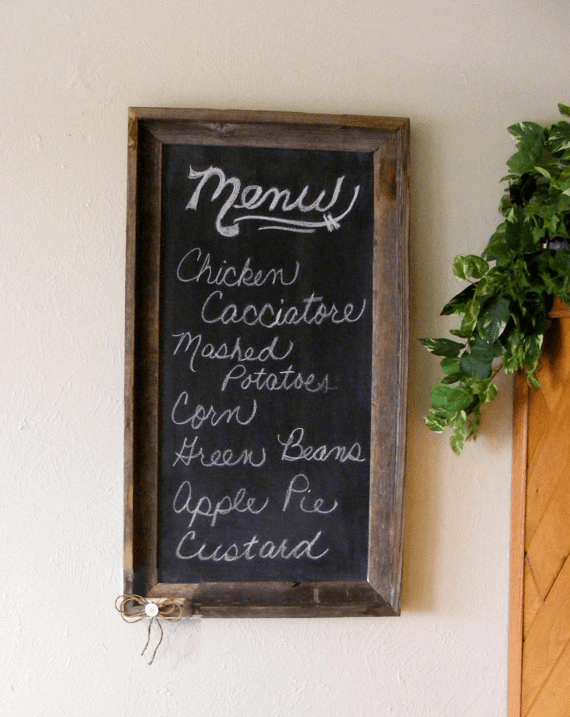 Menu
Chicken
Cacciatore
Mashed
Potatoes
Corn
Green Beans
Apple Pie
Custard